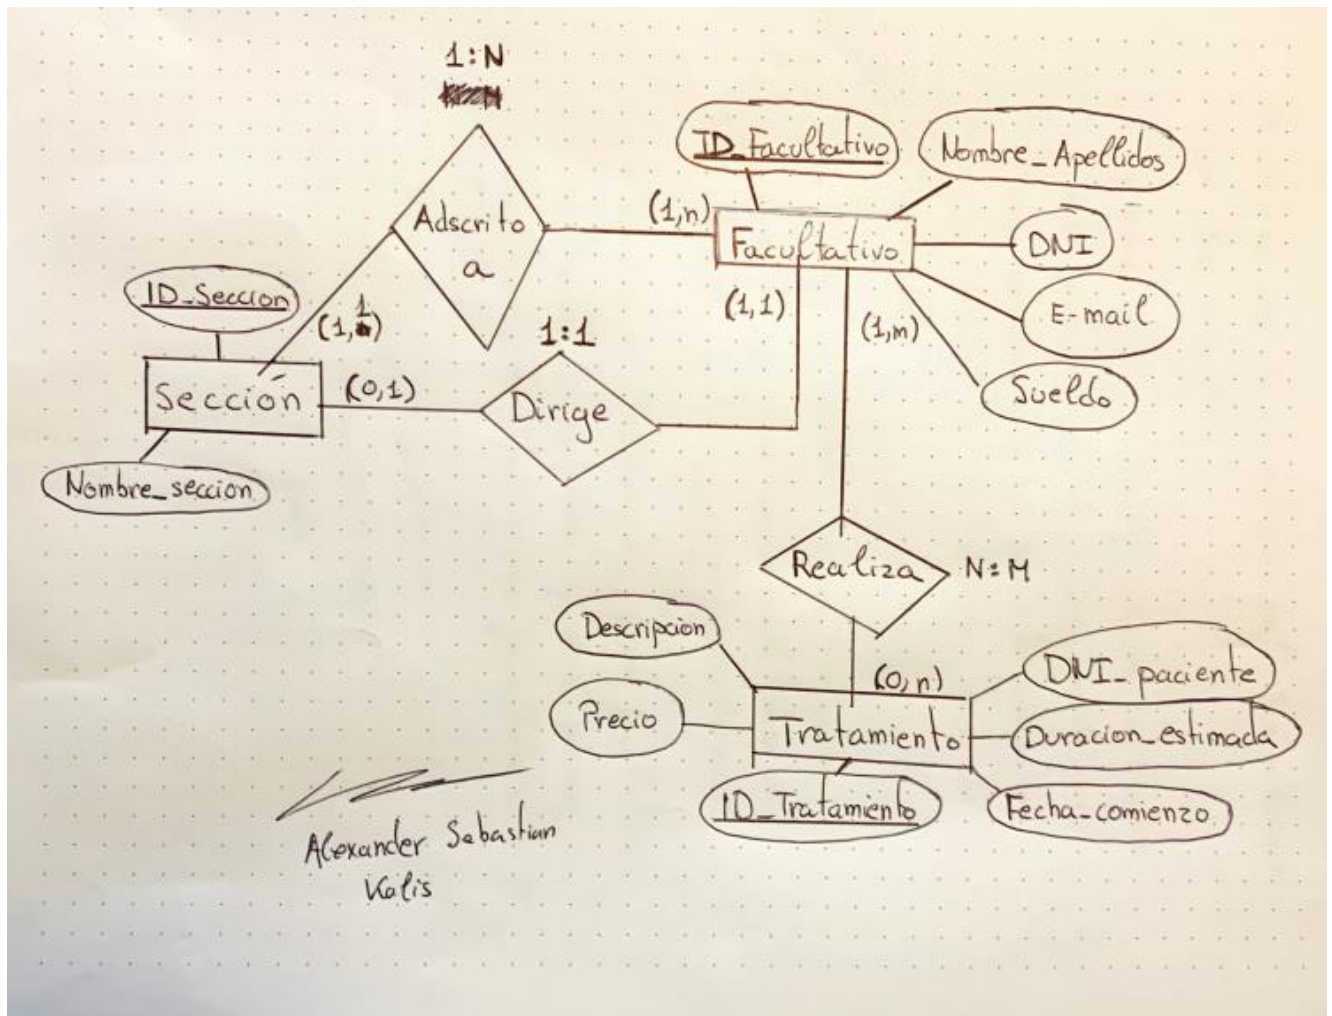 1:N
ID_Facultativo
Nombre_Apellidos
Adscrito
a
(1,n)
Facultativo
DNI
ID_Seccion
(1,1)
(1,1)
(1,m)
E-mail
1:1
Sueldo
Sección
(0,1)
Dirige
Nombre_seccion
Realiza
N:M
Descripcion
(0,n)
DNI_paciente
Precio
Tratamiento
Duracion_estimada
ID_Tratamiento
Fecha_comienzo
Alexander Sebastian
Kalis